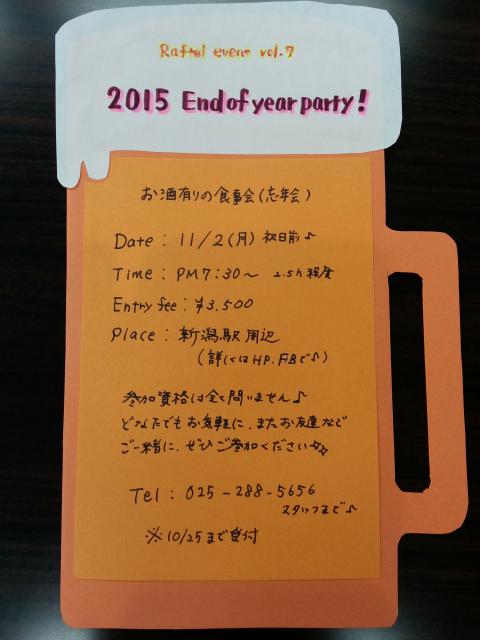 Raftel event vol.7
2015 End of year party!
お酒有りの食事会(忘年会)
Date : 11/2(月) 祝日前♪
Time : PM7:30〜 2.5h程度
Entry fee : ¥3.500
Place : 新潟駅周辺
(詳しくはHP.FBで♪)
参加資格は全く問いません♪
どなたでもお気軽に、またお友達など
ご一緒に、ぜひご参加ください☆☆
Tel : 025-288-5656
スタッフまで♪
※10/25まで受付